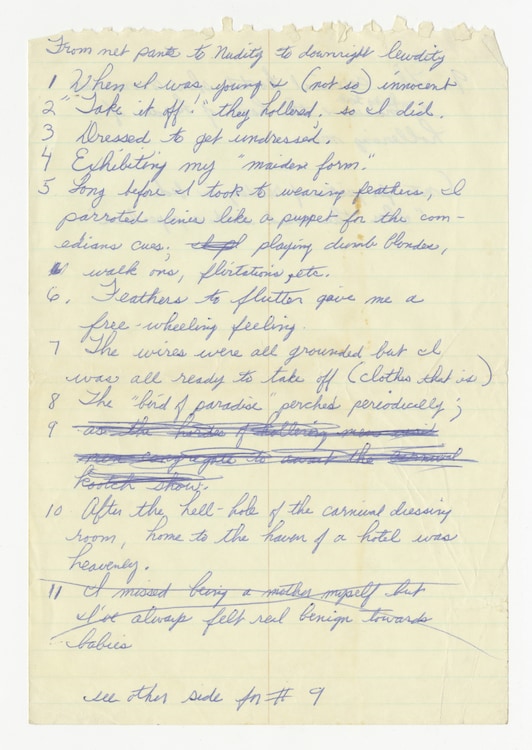 From net pants to Nudity to downright lewdity
1 When I was young & (not so) innocent
2 "Take it off!" they hollered, so I did.
3 Dressed to get undressed.
4 Exhibiting my "maiden form."
5 Long before I took to wearing feathers, I
parroted lines like a puppet for the com-
edians cues, playing dumb blondes,
walk ons, flirtations, etc.
6. Feathers to flutter gave me a
free-wheeling feeling.
7 The wires were all grounded but I
was all ready to take off (clothes that is)
8 The "bird of paradise" perches periodically;
9 as the herds of hollering men
congregate to await the carnival
kootch show.
10 After the hell-hole of the carnival dressing
room, home to the haven of a hotel was
heavenly.
11 I missed being a mother myself but
I've always felt real benign towards
babies
see other side for # 9